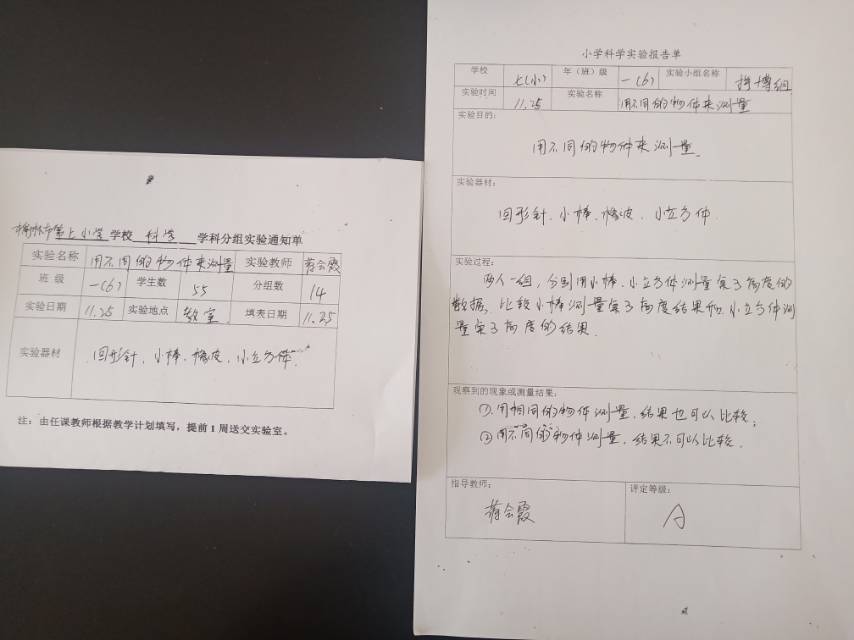 榆林市第七小学 学校 科学 学科分组实验通知单
实验名称 用不同的物体来测量 实验教师 蒋会霞
班 级 一(6) 学生数 55 分组数 14
实验日期 11.25 实验地点 教室 填表日期 11.25
实验器材 回形针、小棒、橡皮、小立方体
注：由任课教师根据教学计划填写，提前1周送交实验室。
小学科学实验报告单
学校 七(小) 年（班）级 一(6) 实验小组名称 拼博组
实验时间 11.25 实验名称 用不同的物体来测量
实验目的：
用不同的物体来测量.
实验器材：
回形针、小棒、橡皮、小立方体.
实验过程：
两人一组，分别用小棒、小立方体测量桌子高度的
数据，比较小棒测量桌子高度结果和小立方体测
量桌子高度的结果.
观察到的现象或测量结果：
①.用相同的物体测量，结果也可以比较；
②用不同的物体测量，结果不可以比较.
指导教师： 评定等级：
蒋会霞 A